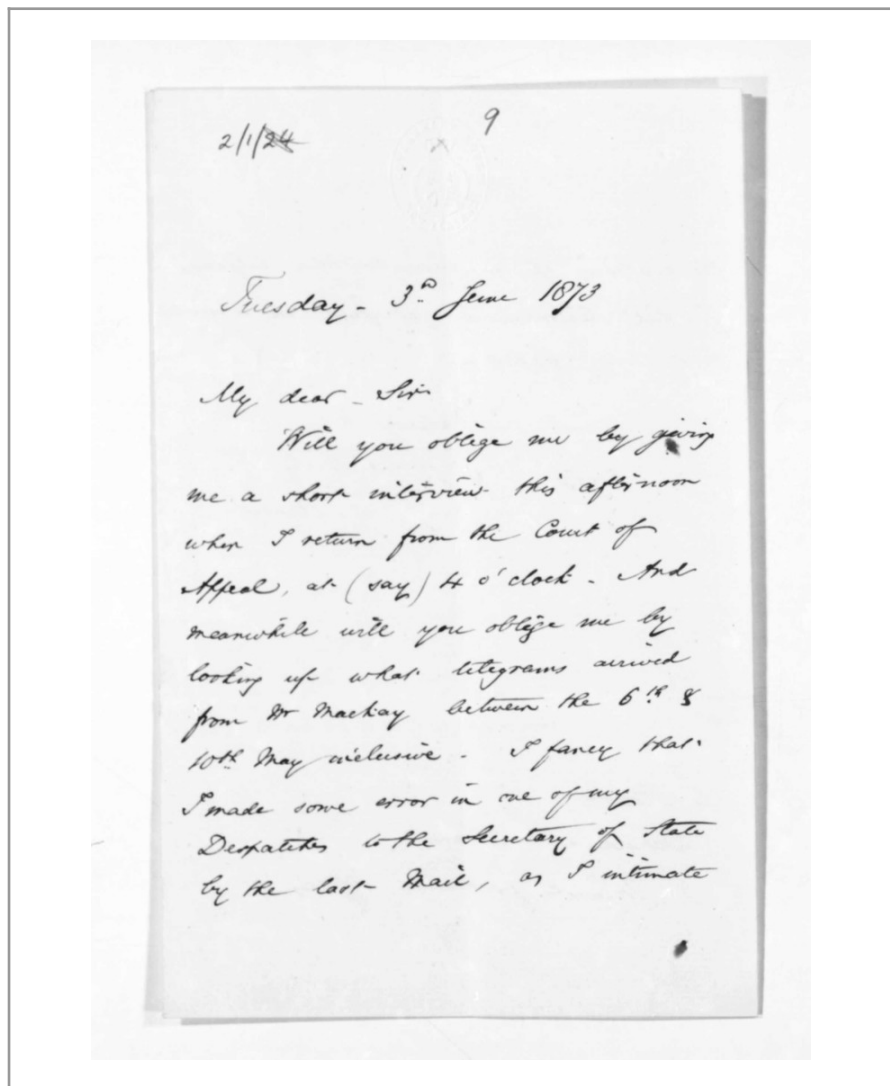 9
2/1/24
Tuesday - 3rd June 1873
My dear - Sir
Will you oblige me by giving
me a short interview this afternoon
when I return from the Court of
Appeal, at (say) 4 o'clock - And
meanwhile will you oblige me by
looking up what telegrams arrived
from Mr Mackay between the 6th &
10th May inclusive - I fancy that
I made some error in one of my
Despatches to the Secretary of State
by the last Mail, as I intimate